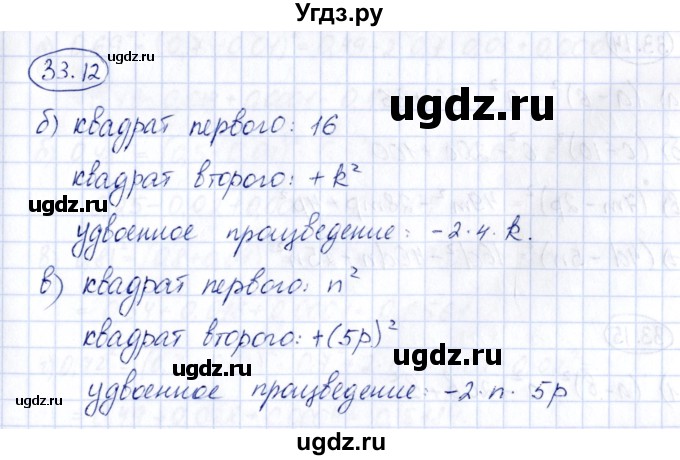 Угдз.ру
33.12
б) квадрат первого: 16
квадрат второго: +k²
удвоенное произведение: -2·4·k.
в) квадрат первого: n²
квадрат второго: +(5p)²
удвоенное произведение: -2·n·5p
ugdz.ru
ugdz.ru
ugdz.ru
ugdz.ru
ugdz.ru
ugdz.ru
ugdz.ru
ugdz.ru
ugdz.ru